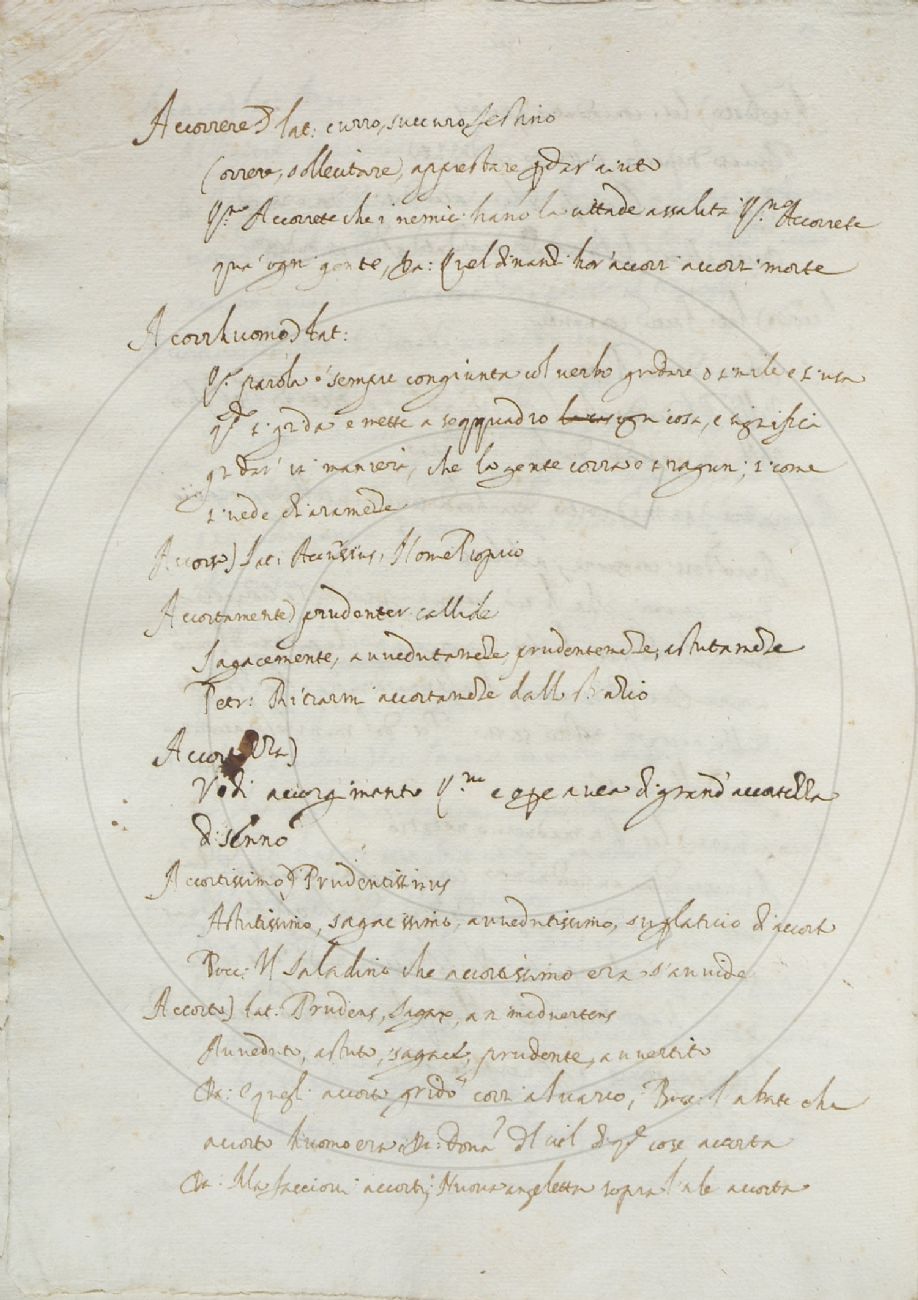 Accorrere) lat: curro, succurro, festino
Correre, sollecitare, apprestare p dar' aiuto
Accorrete che i nemici hano la cittade assalita Accorrete
qua ogni gente, Da: Quel dinanzi hor' accorri accorri morte
Accorrhuomo) lat:
parola è sempre congiunta col verbo gridare o simile e s'usa
si grida e mette a soqquadro ogni cosa, e significa
gridar' in maniera, che la gente corra e si raguni, si come
si vede chiaramente
Accorso) Lat: Accursius, Nome Proprio
Accortamente) prudenter callide
Sagacemente, avvedutamente, prudentemente, astutamente
Petr: Ritrarmi accortamente dallo stratio
Accortezza)
Vedi accorgimento e avea di grand' accortezza
di senno
Accortissimo) Prudentissimus
Astutissimo, sagacissimo, avvedutissimo, suplativo di accorto
Bocc: Il Saladino che accortissimo era s'avvide
Accorto) lat: Prudens, sagax, animadvertens
Avveduto, astuto, sagace, prudente, avvertito
Da: e quegli accorto gridò corri al varco, Bocc: l'abate che
accorto huomo era Da: Dona del ciel di cose accorta
Da: accorti, Nuova angeletta sopra l'ale accorta